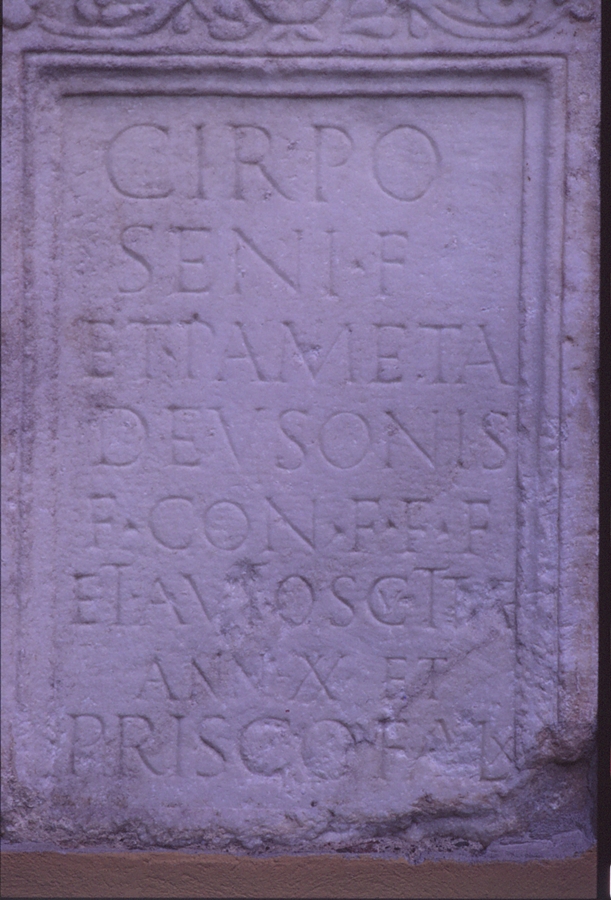 CIRPO
SENI·F
ET·TAMETA
DEVSONIS
F·CON·F·F·F
ET
ANN·X ET
PRISCO·F·A·